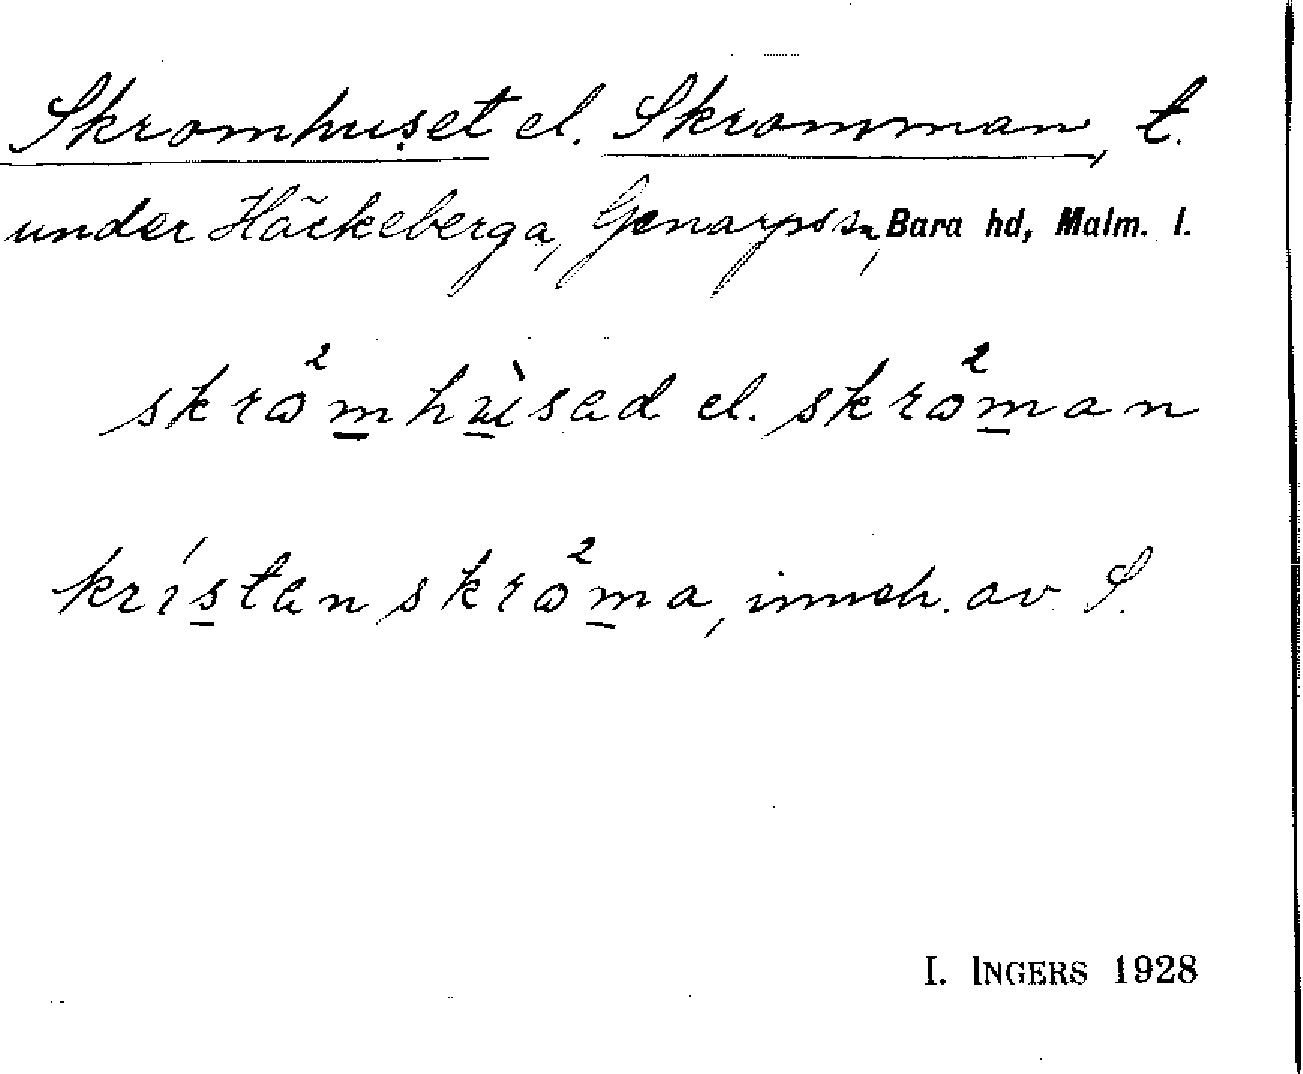 Skromhuset el. Skromman, t.
under Häckeberga, Genarps sn, Bara hd, Malm. l.
skrω²m̲hù̲sad el. skrω²m̲an
krís̲tan skrω²m̲a, inneh. av S.
I. INGERS 1928